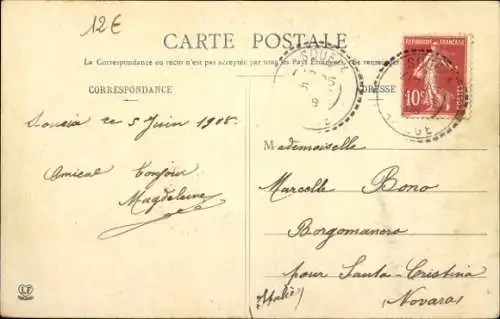 12€
CARTE POSTALE
La Correspondance au recto n'est pas acceptée par tous les Pays Étrangers. Se renseigner
CORRESPONDANCE
ADRESSE
REPUBLIQUE FRANÇAISE
10c
POSTES
ce 5 Juin 1908.
Amical bonjour
Magdeleine
Mademoiselle
Marcelle Bono
Borgomanero
pour Santa-Cristina
(Italie)
Novara